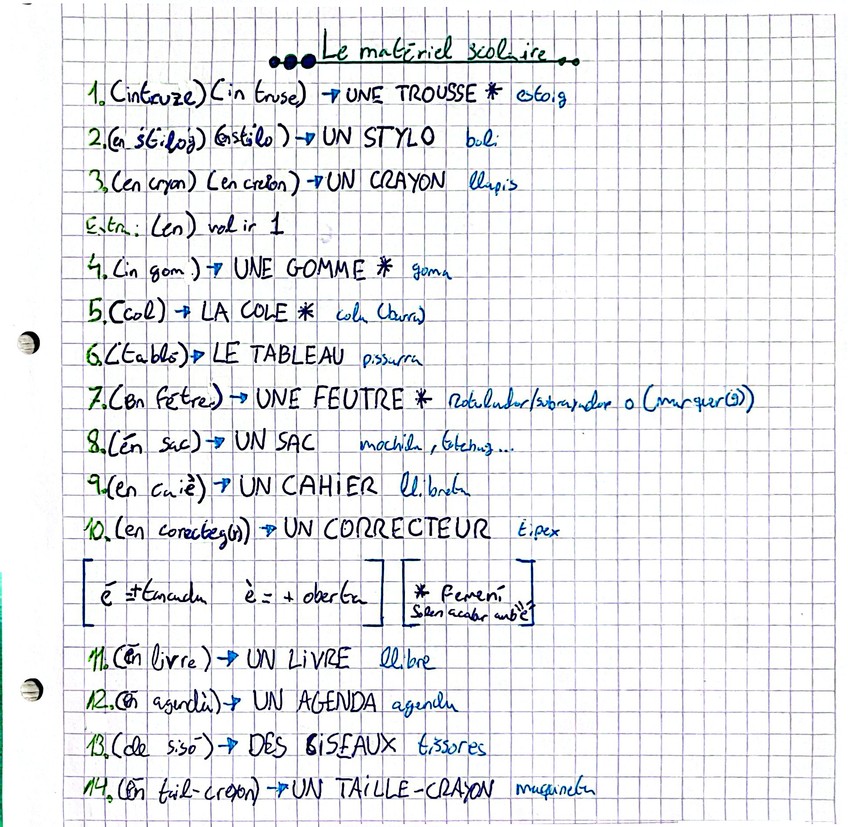 Le matériel scolaire
1. (intruze) (in truse) → UNE TROUSSE * estoig
2. (en stilog) (enstilo) → UN STYLO boli
3. (en cryon) (en creion) → UN CRAYON llapis
Extra: (en) vol ir 1
4. (in gom) → UNE GOMME * goma
5. (col) → LA COLE * cola (barra)
6. (tabló) → LE TABLEAU pissarra
7. (en fetre) → UNE FEUTRE * rotulador/subrayador o (marquer(s))
8. (én sac) → UN SAC mochila, ...
9. (en caiè) → UN CAHIER llibreta
10. (en correcteg(r)) → UN CORRECTEUR tipex
é = + tancada è = + oberta * Femení
Solen acabar amb "e"
11. (én livre) → UN LIVRE llibre
12. (én agendà) → UN AGENDA agenda
13. (de sisó) → DES SISEAUX tissores
14. (én tail-creion) → UN TAILLE-CRAYON maquineta